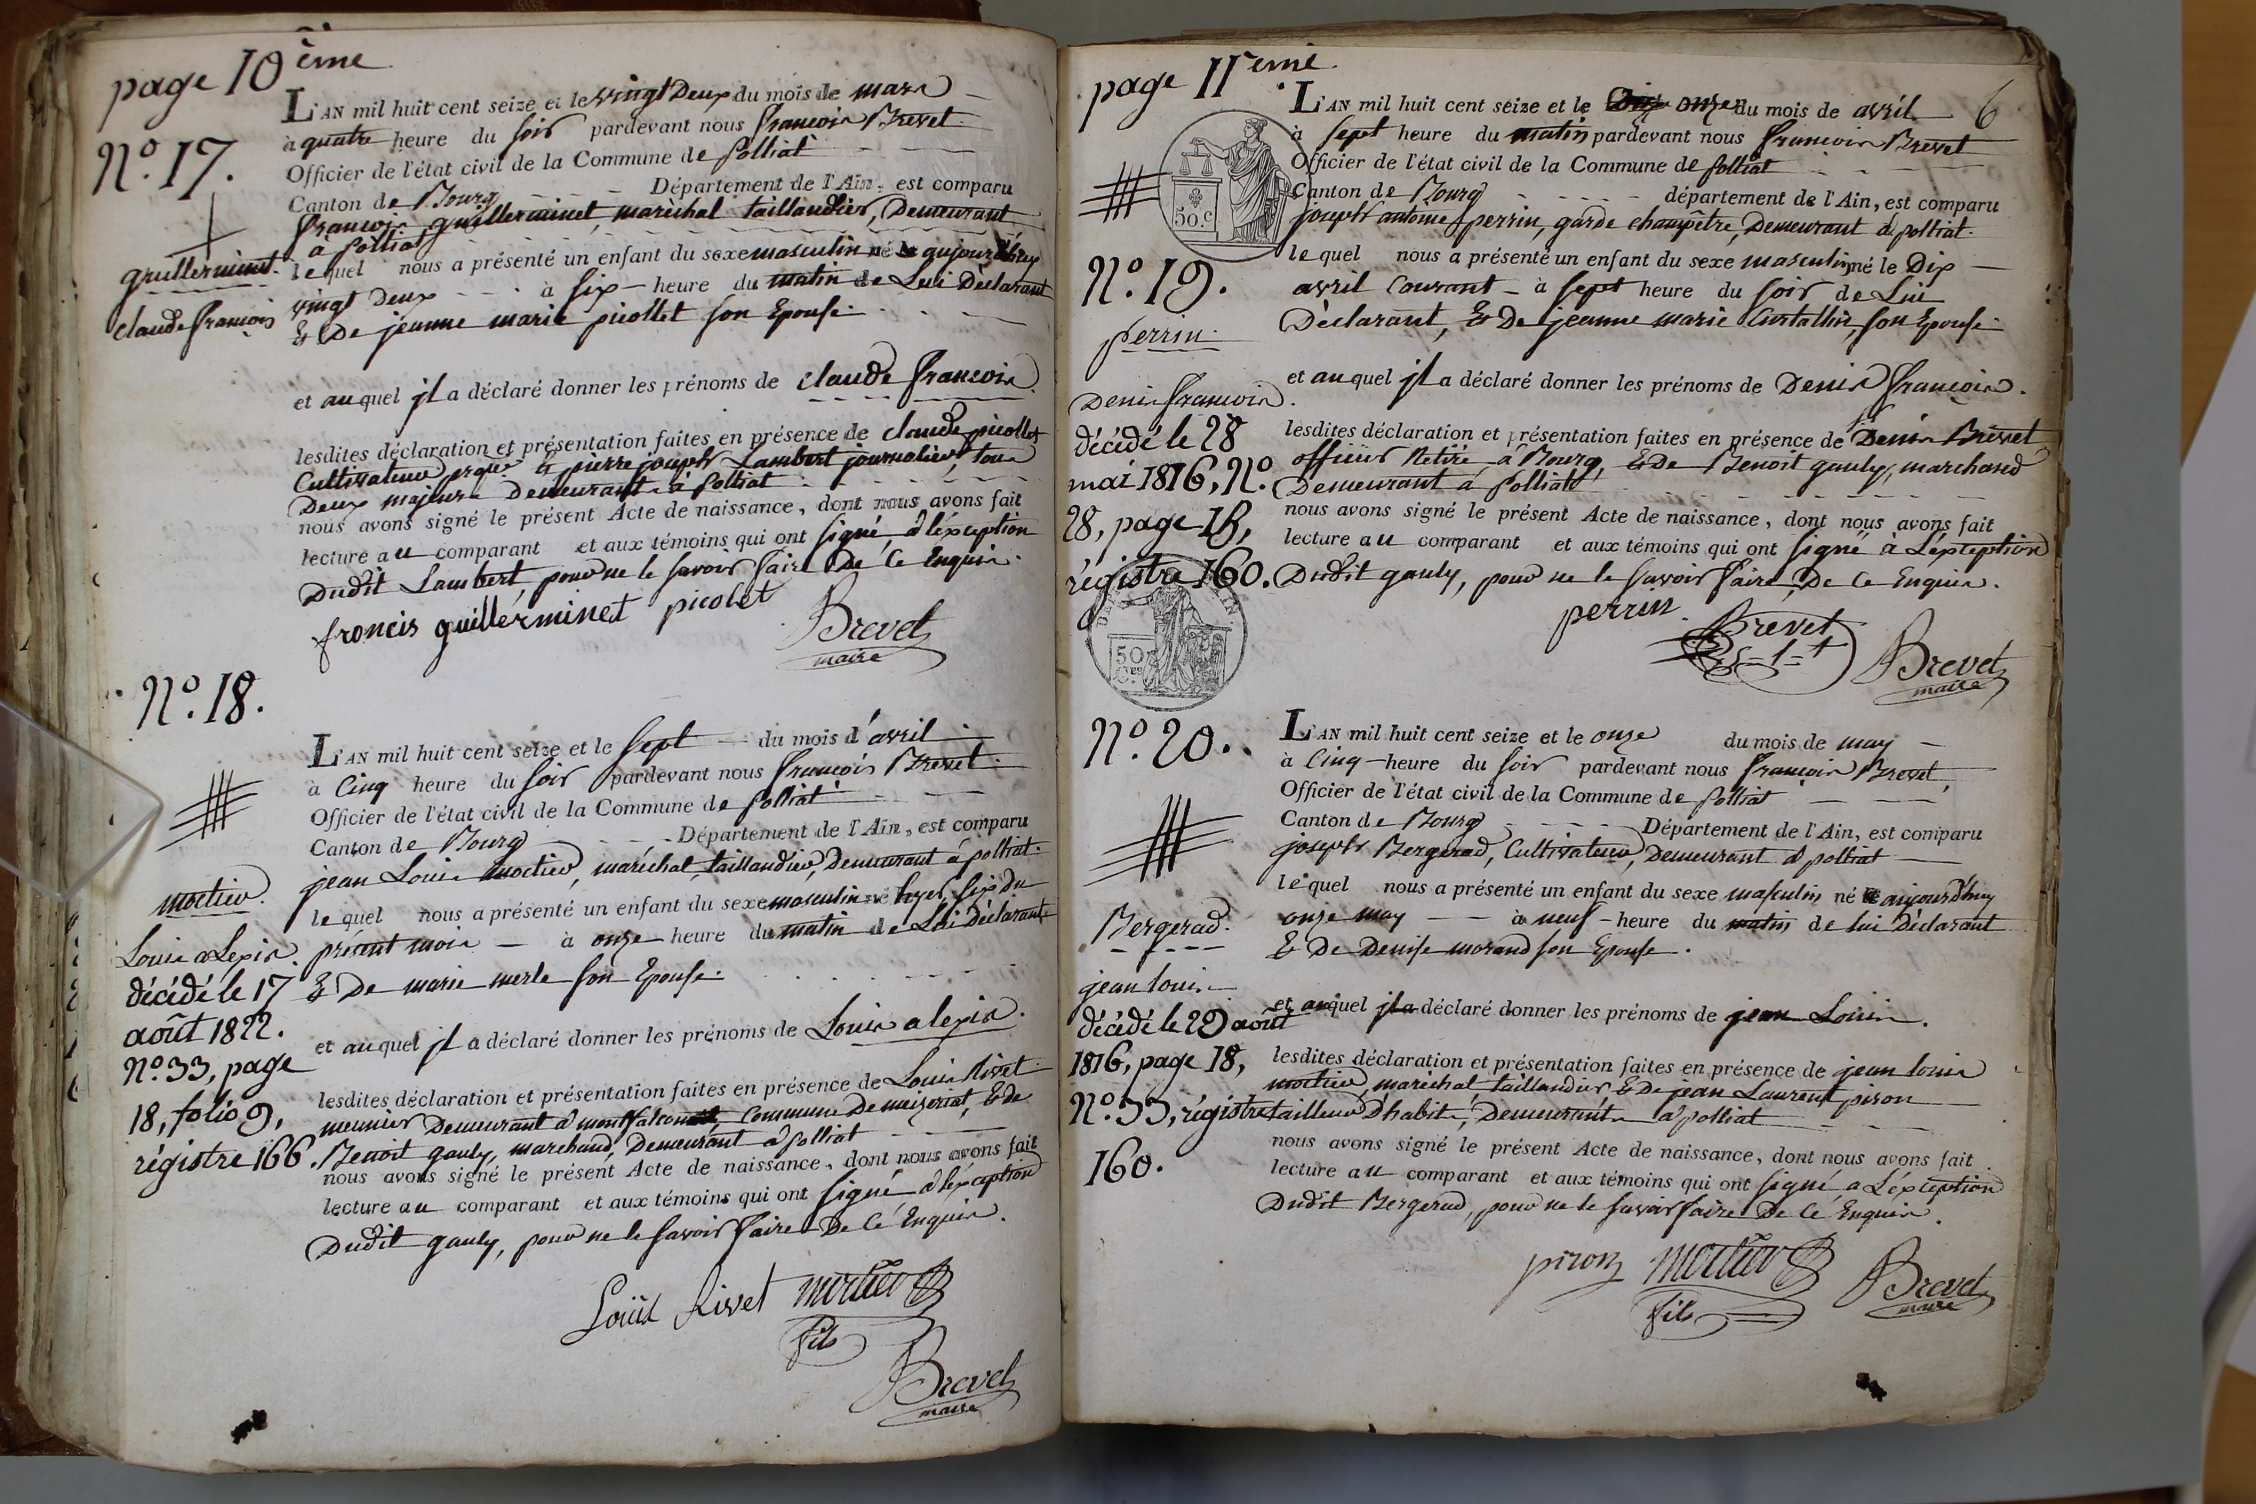 page 10ème
L'AN mil huit cent seize et le vingt Deux du mois de mars
à quatre heure du soir pardevant nous françois Brevet
Officier de l'état civil de la Commune de polliat
Canton de Bourg Département de l'Ain, est comparu
françois guillerminet, maréchal taillandier, Demeurant
à polliat
lequel nous a présenté un enfant du sexe masculin né aujourd'huy
vingt Deux à six heure du matin de Lui Déclarant
& De jeanne marie picollet son Epouse.
et auquel jl a déclaré donner les prénoms de claude françois
lesdites déclaration et présentation faites en présence de claude picollet
Cultivateur & pierre joseph Lambert journalier, tous
Deux majeurs Demeurants à polliat
nous avons signé le présent Acte de naissance, dont nous avons fait
lecture au comparant et aux témoins qui ont signé, à l'exception
Dudit Lambert, pour ne le savoir faire De ce Enquis.
francis guillerminet picolet Brevet
maire
No. 17.
guillerminet.
claude françois
No. 18.
L'AN mil huit cent seize et le sept du mois d'avril
à Cinq heure du soir pardevant nous françois Brevet
Officier de l'état civil de la Commune de polliat
Canton de Bourg Département de l'Ain, est comparu
jean Louis moctier, maréchal taillandier, Demeurant à polliat.
lequel nous a présenté un enfant du sexe masculin né hyer, six du
présent mois à onze heure du matin de Lui Déclarant
& De marie merle son Epouse.
et auquel jl a déclaré donner les prénoms de Louis alexis.
lesdites déclaration et présentation faites en présence de Louis Rivet
meunier Demeurant à Commune De meizeriat, & de
Benoit gauly, marchand, Demeurant à polliat
nous avons signé le présent Acte de naissance, dont nous avons fait
lecture au comparant et aux témoins qui ont signé à l'exception
Dudit gauly, pour ne le savoir faire De Cé Enquis.
Louis Rivet moctier
fils
Brevet
maire
moctier.
Louis alexis.
décédé le 17
août 1822.
No. 33, page
18, folio 9,
régistre 166.
page 11ème
6
L'AN mil huit cent seize et le onze du mois de avril
à sept heure du matin pardevant nous françois Brevet
Officier de l'état civil de la Commune de polliat
Canton de Bourg département de l'Ain, est comparu
joseph antoine perrin, garde champêtre, Demeurant à polliat.
lequel nous a présenté un enfant du sexe masculin né le Dix
avril Courant à sept heure du soir de Lui
Déclarant, & De jeanne marie son Epouse.
et auquel jl a déclaré donner les prénoms de Denis françois.
lesdites déclaration et présentation faites en présence de Denis Brevet
officier Retiré à Bourg, & De Benoit gauly, marchand
Demeurant à polliat
nous avons signé le présent Acte de naissance, dont nous avons fait
lecture au comparant et aux témoins qui ont signé à L'exception
Dudit gauly, pour ne le savoir faire, De Ce Enquis.
perrin Brevet Brevet
maire
50. c
No. 19.
perrin.
Denis françois.
décédé le 28
mai 1816, No.
28, page 15,
régistre 160.
50
Ces
No. 20.
L'AN mil huit cent seize et le onze du mois de may
à Cinq heure du soir pardevant nous françois Brevet
Officier de l'état civil de la Commune de polliat
Canton de Bourg Département de l'Ain, est comparu
joseph Bergerad, Cultivateur, Demeurant à polliat
lequel nous a présenté un enfant du sexe masculin né aujourd'huy
onze may à neuf heure du matin de lui Déclarant
& De Denise morand son Epouse.
et auquel jl a déclaré donner les prénoms de jean Louis.
lesdites déclaration et présentation faites en présence de jean louis
moctier, maréchal taillandier & De jean Laurent piron
tailleur D'habits, Demeurants à polliat
nous avons signé le présent Acte de naissance, dont nous avons fait
lecture au comparant et aux témoins qui ont signé a L'éxception
Dudit Bergerad, pour ne le savoir faire De Cé Enquis.
piron moctier Brevet
fils maire
Bergerad.
jean louis
décédé le 29 août
1816, page 18,
No. 33, régistre
160.